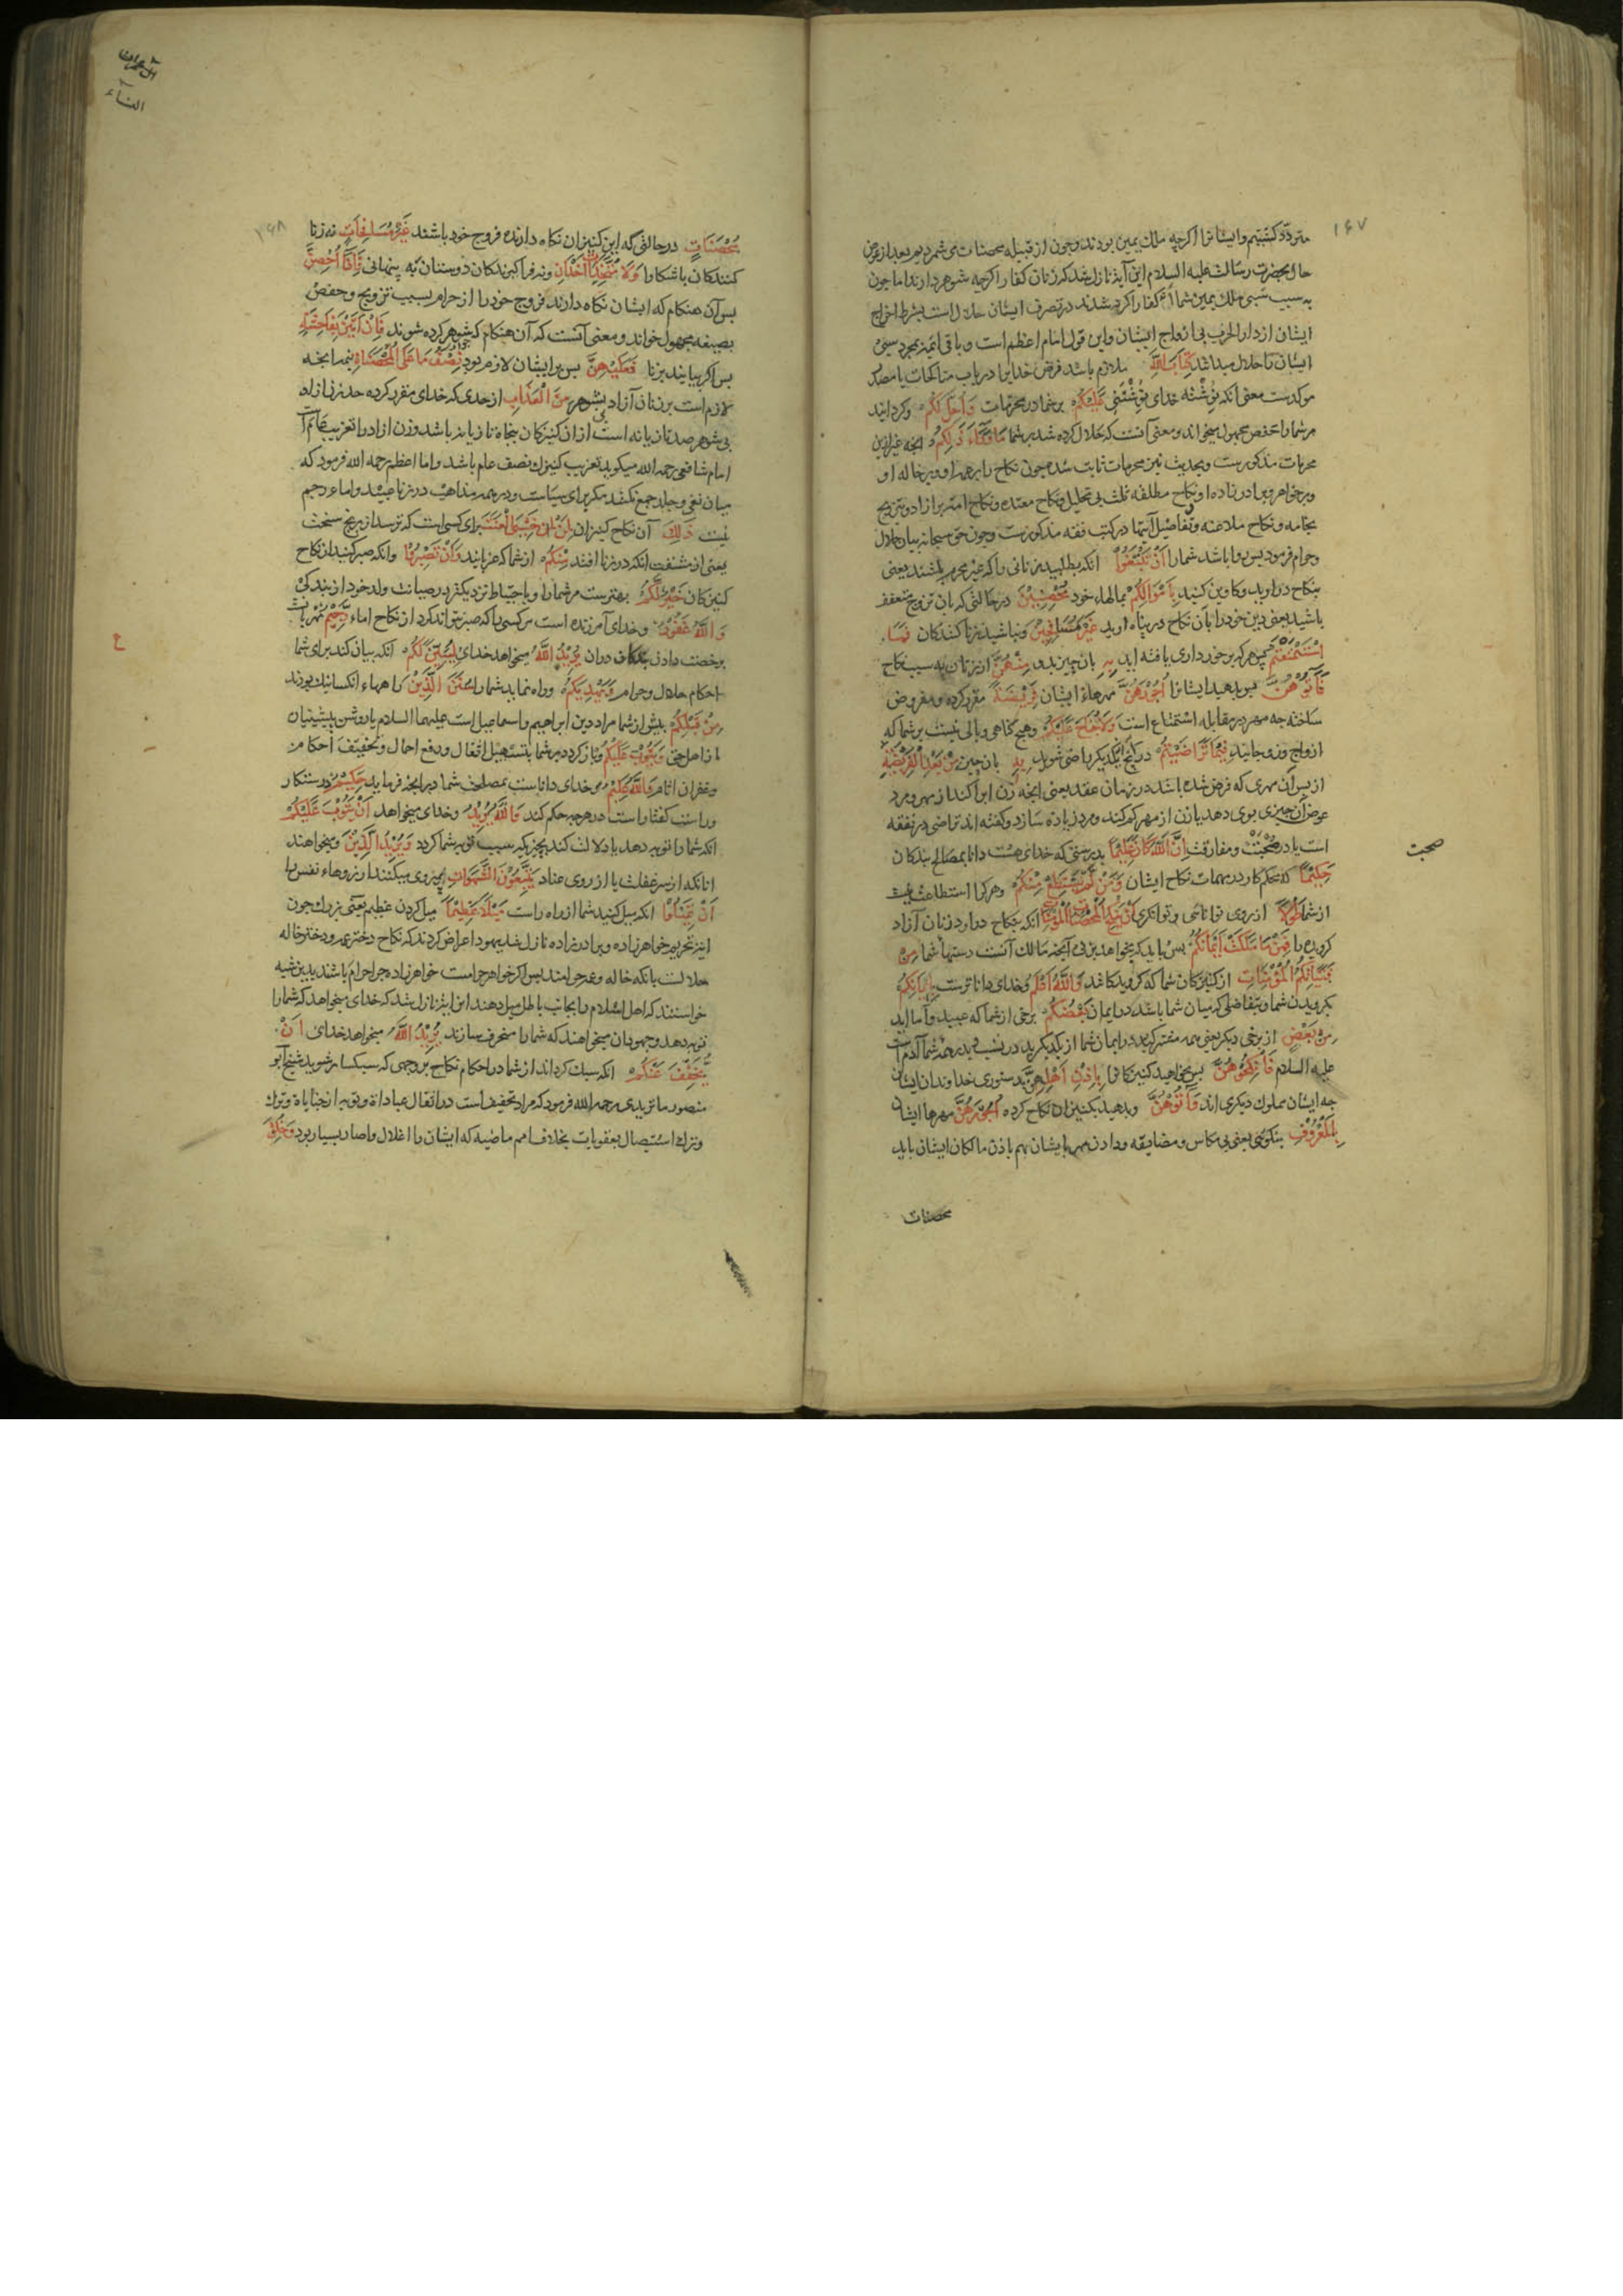 ۱۶۷
متردد کشتیم وایشانرا اکرچه ملک یمین بودند وچون از قبیله محصنات می شمردیم بعد از عرض
حال بحضرت رسالت علیه السلام این آیة نازل شد که زنان کفار اکرچه شوهر دارند اما چون
به سبب سبی ملک یمین شما کفار اکر شدند در تصرف ایشان حلال است بشرط اخراج
ایشان از دار الحرب بی ازواج ایشان واین قول امام اعظم است و باقی ائمه بمجرد سبی
ایشانرا حلال میداشتند كِتَابَ اللَّهِ ملازم باشد فرض خدایرا در باب مناکحات یا مصدر
موکدست معنی آنکه نوشته خدای نوشتنی عَلَيْكُمْ بر شما در محرمات وَأُحِلَّ لَكُمْ وکردانید
مر شما را حفص مجهول میخواند ومعنی آنست که حلال کرده شد بر شما مَا وَرَاءَ ذَلِكُمْ آنچه غیر ازین
محرمات مذکورست وبحدیث نیز محرمات ثابت شده چون نکاح زن بر عمه او وبر خاله او
وبر خواهر وبرادر زاده او ونکاح مطلقه ثلث بی تحلیل ونکاح معتده ونکاح امة بر آزاد وتزویج
بخامه ونکاح ملاعنه وتفاصیل آنها در کتب فقه مذکورست وچون حق سبحانه بیان حلال
وحرام فرمود پس روا باشد شما را أَنْ تَبْتَغُوا آنکه بطلبید زنانی را که غیر محرم باشند یعنی
بنکاح در آورید وکاوین کنید بِأَمْوَالِكُمْ بمالهاء خود مُحْصِنِينَ در حالتی که بآن تزویج متعفف
باشید یعنی دین خود را بآن نکاح در پناه آرید غَيْرَ مُسَافِحِينَ ونباشید زنا کنندکان فَمَا
اسْتَمْتَعْتُمْ پس هر که برخورداری یافته اید بِهِ بآن چیز بدو مِنْهُنَّ از زنان به سبب نکاح
فَآتُوهُنَّ پس بدهید ایشانرا أُجُورَهُنَّ مهرهاء ایشان فَرِيضَةً مقرر کرده ومفروض
ساخته چه مهر در مقابله استمتاع است وَلَا جُنَاحَ عَلَيْكُمْ وهیچ کناهی وبالی نیست بر شما که
ازواج وزوجاتید فِيمَا تَرَاضَيْتُمْ در آنچه از یکدیکر راضی شوید بِهِ بآن چیز مِنْ بَعْدِ الْفَرِيضَةِ
از پس آن مهری که فرض شده باشد در زمان عقد یعنی آنچه زن ابرا کند از مهر ومرد
عوض آن چیزی بوی دهد یا زن از مهر کم کند ومرد زیاده سازد وکفته اند تراضی در نفقه
است یا در صحبت ومفارقت إِنَّ اللَّهَ كَانَ عَلِيمًا بدرستی که خدای هست دانا بمصالح بندکان
صحبت
حَكِيمًا حکم کار در مهمات نکاح ایشان وَمَنْ لَمْ يَسْتَطِعْ مِنْكُمْ وهر کرا استطاعت نیست
از شما طَوْلًا از روی توانائی وتوانکری أَنْ يَنْكِحَ الْمُحْصَنَاتِ الْمُؤْمِنَاتِ آنکه بنکاح در آورد زنان آزاد
کرویده را فَمِنْ مَا مَلَكَتْ أَيْمَانُكُمْ پس باید که بخواهد بزنی آنچه مالک آنست دستهاء شما مِنْ
فَتَيَاتِكُمُ الْمُؤْمِنَاتِ از کنیزکان شما که کرویده باشند وَاللَّهُ أَعْلَمُ وخدای داناترست بِإِيمَانِكُمْ
بکرویدن شما وبتفاضلی که میان شما باشد در ایمان بَعْضُكُمْ برخی از شما که عبید وآما اید
مِنْ بَعْضٍ از برخی دیکر یعنی همه مفتقرکید در ایمان شما از یکدیکرید در نسب پدر همه شما آدم است
علیه السلام فَانْكِحُوهُنَّ پس بخواهید کنیزکانرا بِإِذْنِ أَهْلِهِنَّ بدستوری خداوندان ایشان
چه ایشان مملوک دیکری اند وَآتُوهُنَّ وبدهید بکنیزان نکاح کرده أُجُورَهُنَّ مهرهاء ایشان
بِالْمَعْرُوفِ بنکوئی یعنی بی مکاس ومضایقه ودادن مهر بایشان هم باذن مالکان ایشان باید
محصنات
آل عمران
النساء
۱۶۸
مُحْصَنَاتٍ در حالتی که این کنیزان نکاه دارنده فروج خود باشند غَيْرَ مُسَافِحَاتٍ نه زنا
کنندکان باشکارا وَلَا مُتَّخِذَاتِ أَخْدَانٍ ونه فراکیرندکان دوستان به پنهانی فَإِذَا أُحْصِنَّ
پس آن هنکام که ایشان نکاه دارند فروج خود را از حرام بسبب تزویج وحفص
بصیغه مجهول خواند ومعنی آنست که آن هنکام که شوهر کرده شوند فَإِنْ أَتَيْنَ بِفَاحِشَةٍ
پس اکر بیایند بزنا فَعَلَيْهِنَّ پس بر ایشان لازم بود نِصْفُ مَا عَلَى الْمُحْصَنَاتِ نیمه آنچه
لازم است بر زنان آزاد بی شوهر مِنَ الْعَذَابِ از حدی که خدای مقرر کرده حد زن آزاد
بی شوهر صد تازیانه است از آن کنیزکان پنجاه تازیانه باشد وزن آزاد را تغریب عام
امام شافعی رحمه الله میکوید تغریب کنیزک نصف عام باشد واما اعظم رحمه الله فرمود که
میان نفی وجلد جمع نکنند مکر برای سیاست ودر همه مذاهب در زناء عبید واماء رجم
نیست ذَلِكَ آن نکاح کنیزان لِمَنْ خَشِيَ الْعَنَتَ برای کسی است که ترسد از رنج سخت
یعنی از مشقت آنکه در زنا افتد مِنْكُمْ از شما که عزبانید وَأَنْ تَصْبِرُوا وآنکه صبر کنید از نکاح
کنیزکان خَيْرٌ لَكُمْ بهترست مر شما را وباحتیاط نزدیکتر در صیانت ولد خود از بندکی
وَاللَّهُ غَفُورٌ وخدای آمرزنده است مر کسی را که صبر نتواند کرد از نکاح اماء رَحِيمٌ مهربانست
برخصت دادن بندکان در آن يُرِيدُ اللَّهُ میخواهد خدای لِيُبَيِّنَ لَكُمْ آنکه بیان کند برای شما
احکام حلال وحرام وَيَهْدِيَكُمْ وراه نماید شما را سُنَنَ الَّذِينَ راههاء آنکسانیکه بودند
مِنْ قَبْلِكُمْ پیش از شما مراد دین ابراهیم واسماعیل است علیهما السلام یا روشن پیشینیان
از اهل حق وَيَتُوبَ عَلَيْكُمْ وباز کردد بر شما بتسهیل اثقال ودفع احمال وتخفیف احکام
وغفران آثام وَاللَّهُ عَلِيمٌ وخدای داناست بمصلحت شما در آنچه فرماید حَكِيمٌ درستکار
وراست کفتار است در هرچه حکم کند وَاللَّهُ يُرِيدُ وخدای میخواهد أَنْ يَتُوبَ عَلَيْكُمْ
آنکه شما را توبه دهد یا دلالت کند بچیزیکه سبب توبه شما کردد وَيُرِيدُ الَّذِينَ ومیخواهند
آنانکه از سر غفلت یا از روی عناد يَتَّبِعُونَ الشَّهَوَاتِ پیروی میکنند آرزوهاء نفس را
أَنْ تَمِيلُوا آنکه میل کنید شما از راه راست مَيْلًا عَظِيمًا میل کردن عظیم یعنی بزرک چون
آیة تحریم خواهر زاده وبرادر زاده نازل شد یهود اعراض کردند که نکاح دختر عمه ودختر خاله
حلالست با آنکه خاله وعمه حرامند پس اکر خواهر حرامست خواهر زاده چرا حرام باشد بدین شبه
خواستند که اهل اسلام را بجانب باطل میل دهند این آیة نازل شد که خدای میخواهد که شما را
توبه دهد وجهودان میخواهند که شما را منحرف سازند يُرِيدُ اللَّهُ میخواهد خدای أَنْ
يُخَفِّفَ عَنْكُمْ آنکه سبک کرداند از شما در احکام نکاح بر وجهی که سبکسار شوید شیخ ابو
منصور ماتریدی رحمه الله فرمود که مراد تخفیف است در اثقال عبادات وتوبه از جنایات وترک
وترک استیصال بعقوبات بخلاف امم ماضیه که ایشان را اغلال وآصار بسیار بود وَخُلِقَ
ع